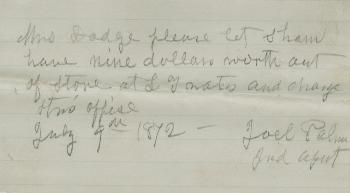 Mrs Dodge please let Sham
have nine dollars worth out
of store at L Y nates and charge
this office
July 9th 1872 - Joel Palm
Ind agent